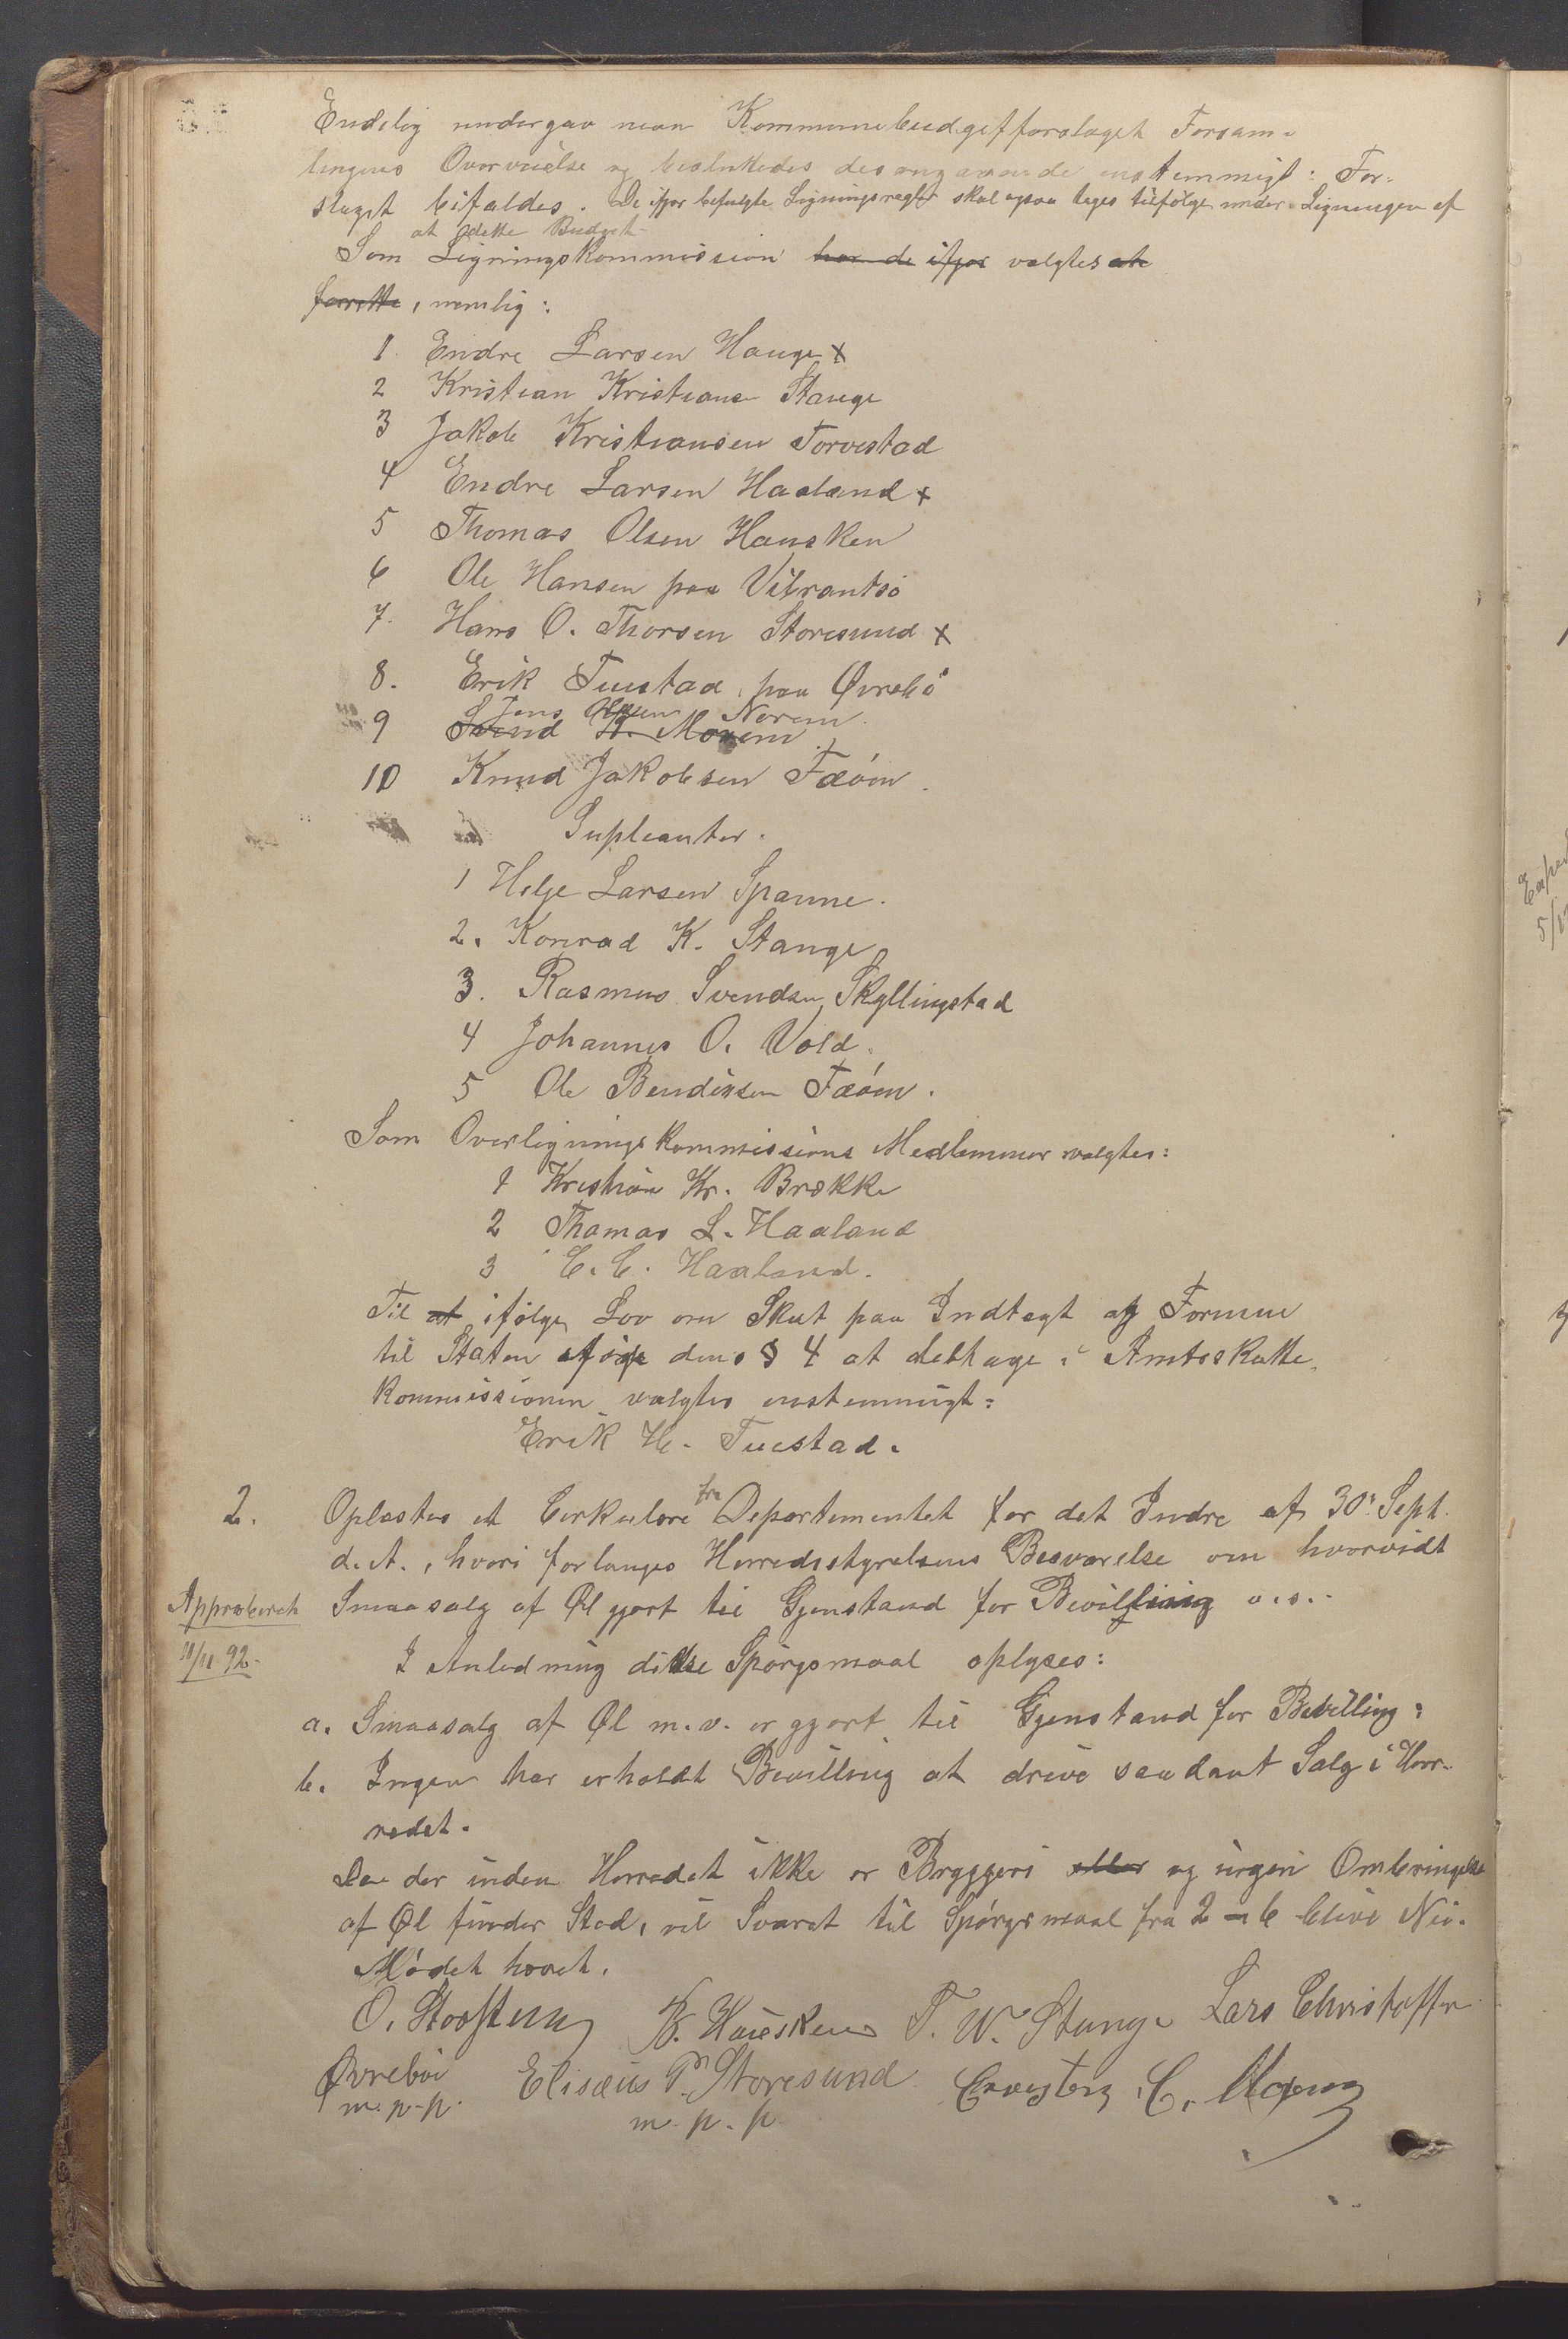 Endelig undergav man Kommunebudgetforslaget Forsam-
lingens Overveielse og besluttedes desangaaende enstemmigt: For-
slaget bifaldes. De ifjor befulgte Ligningsregler skal ogsaa tages tilfølge under Ligningen af
at dette Budget
Som Ligningskommission har de ifjor valgtes at
forrette, nemlig:
1. Endre Larsen Hauge x
2 Kristian Kristians Stange
3 Jakob Kristiansen Torvestad
4 Endre Larsen Haaland x
5 Thomas Olsen Hausken
6 Ole Hansen paa Vibrantsö
7. Hans O. Thorsen Storesund x
8. Erik Tuestad paa Øvrebö
Jens Norem
9 Svend H. Morem
10 Knud Jakobsen Fæöen.
Supleanter.
1 Helge Larsen Spanne.
2. Konrad K. Stange
3. Rasmus Svendsen Skyllingstad
4 Johannes O. Vold.
5 Ole Bendixsen Fæöen.
Som Overligningskommissions Medlemmer valgtes:
1 Kristian Kr. Brekke
2 Thomas L. Haaland
3 C. C. Haaland.
Til at ifølge Lov om Skat paa Indtægt og Formue
til Staten dens § 4 at deltage i Amtsskatte-
kommissionen valgtes enstemmigt:
Erik H. Tuestad.
2. Oplæstes et Cirkulære fra Departementet for det Indre af 30' Sept.
d. A., hvori forlanges Herredsstyrelsens Besvarelse om hvorvidt
Approberet Smaasalg af Øl gjort til Gjenstand for Bevilling o.s.-
/11 92.- I Anledning disse Spørgsmaal oplyses:
a. Smaasalg af Øl m.v. er gjort til Gjenstand for Bevilling:
b. Ingen har erholdt Bevilling at drive saadant Salg i Her-
redet.
Da der inden Herredet ikke er Bryggeri eller og ingen Ombringelse
af Øl finder Sted, vil Svaret til Spørgsmaal fra 2 - 6 blive Nei.
Mödet hævet.
O. K. Hausken T. W. Stange Lars Christoffer
Øvreböe Elisæus P. Storesund C.
m. p. p. m. p. p.